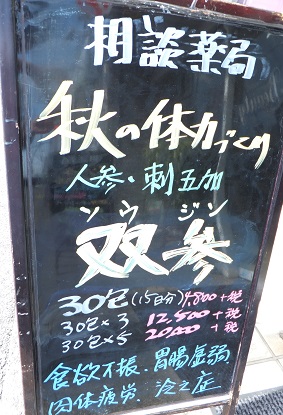 相談薬局
秋の体力づくり
人参・刺五加
ソウジン
双参
30包(15日分) 4,800+税
30包×3 12,500+税
30包×5 20,000+税
食欲不振、胃腸虚弱
肉体疲労、冷え症